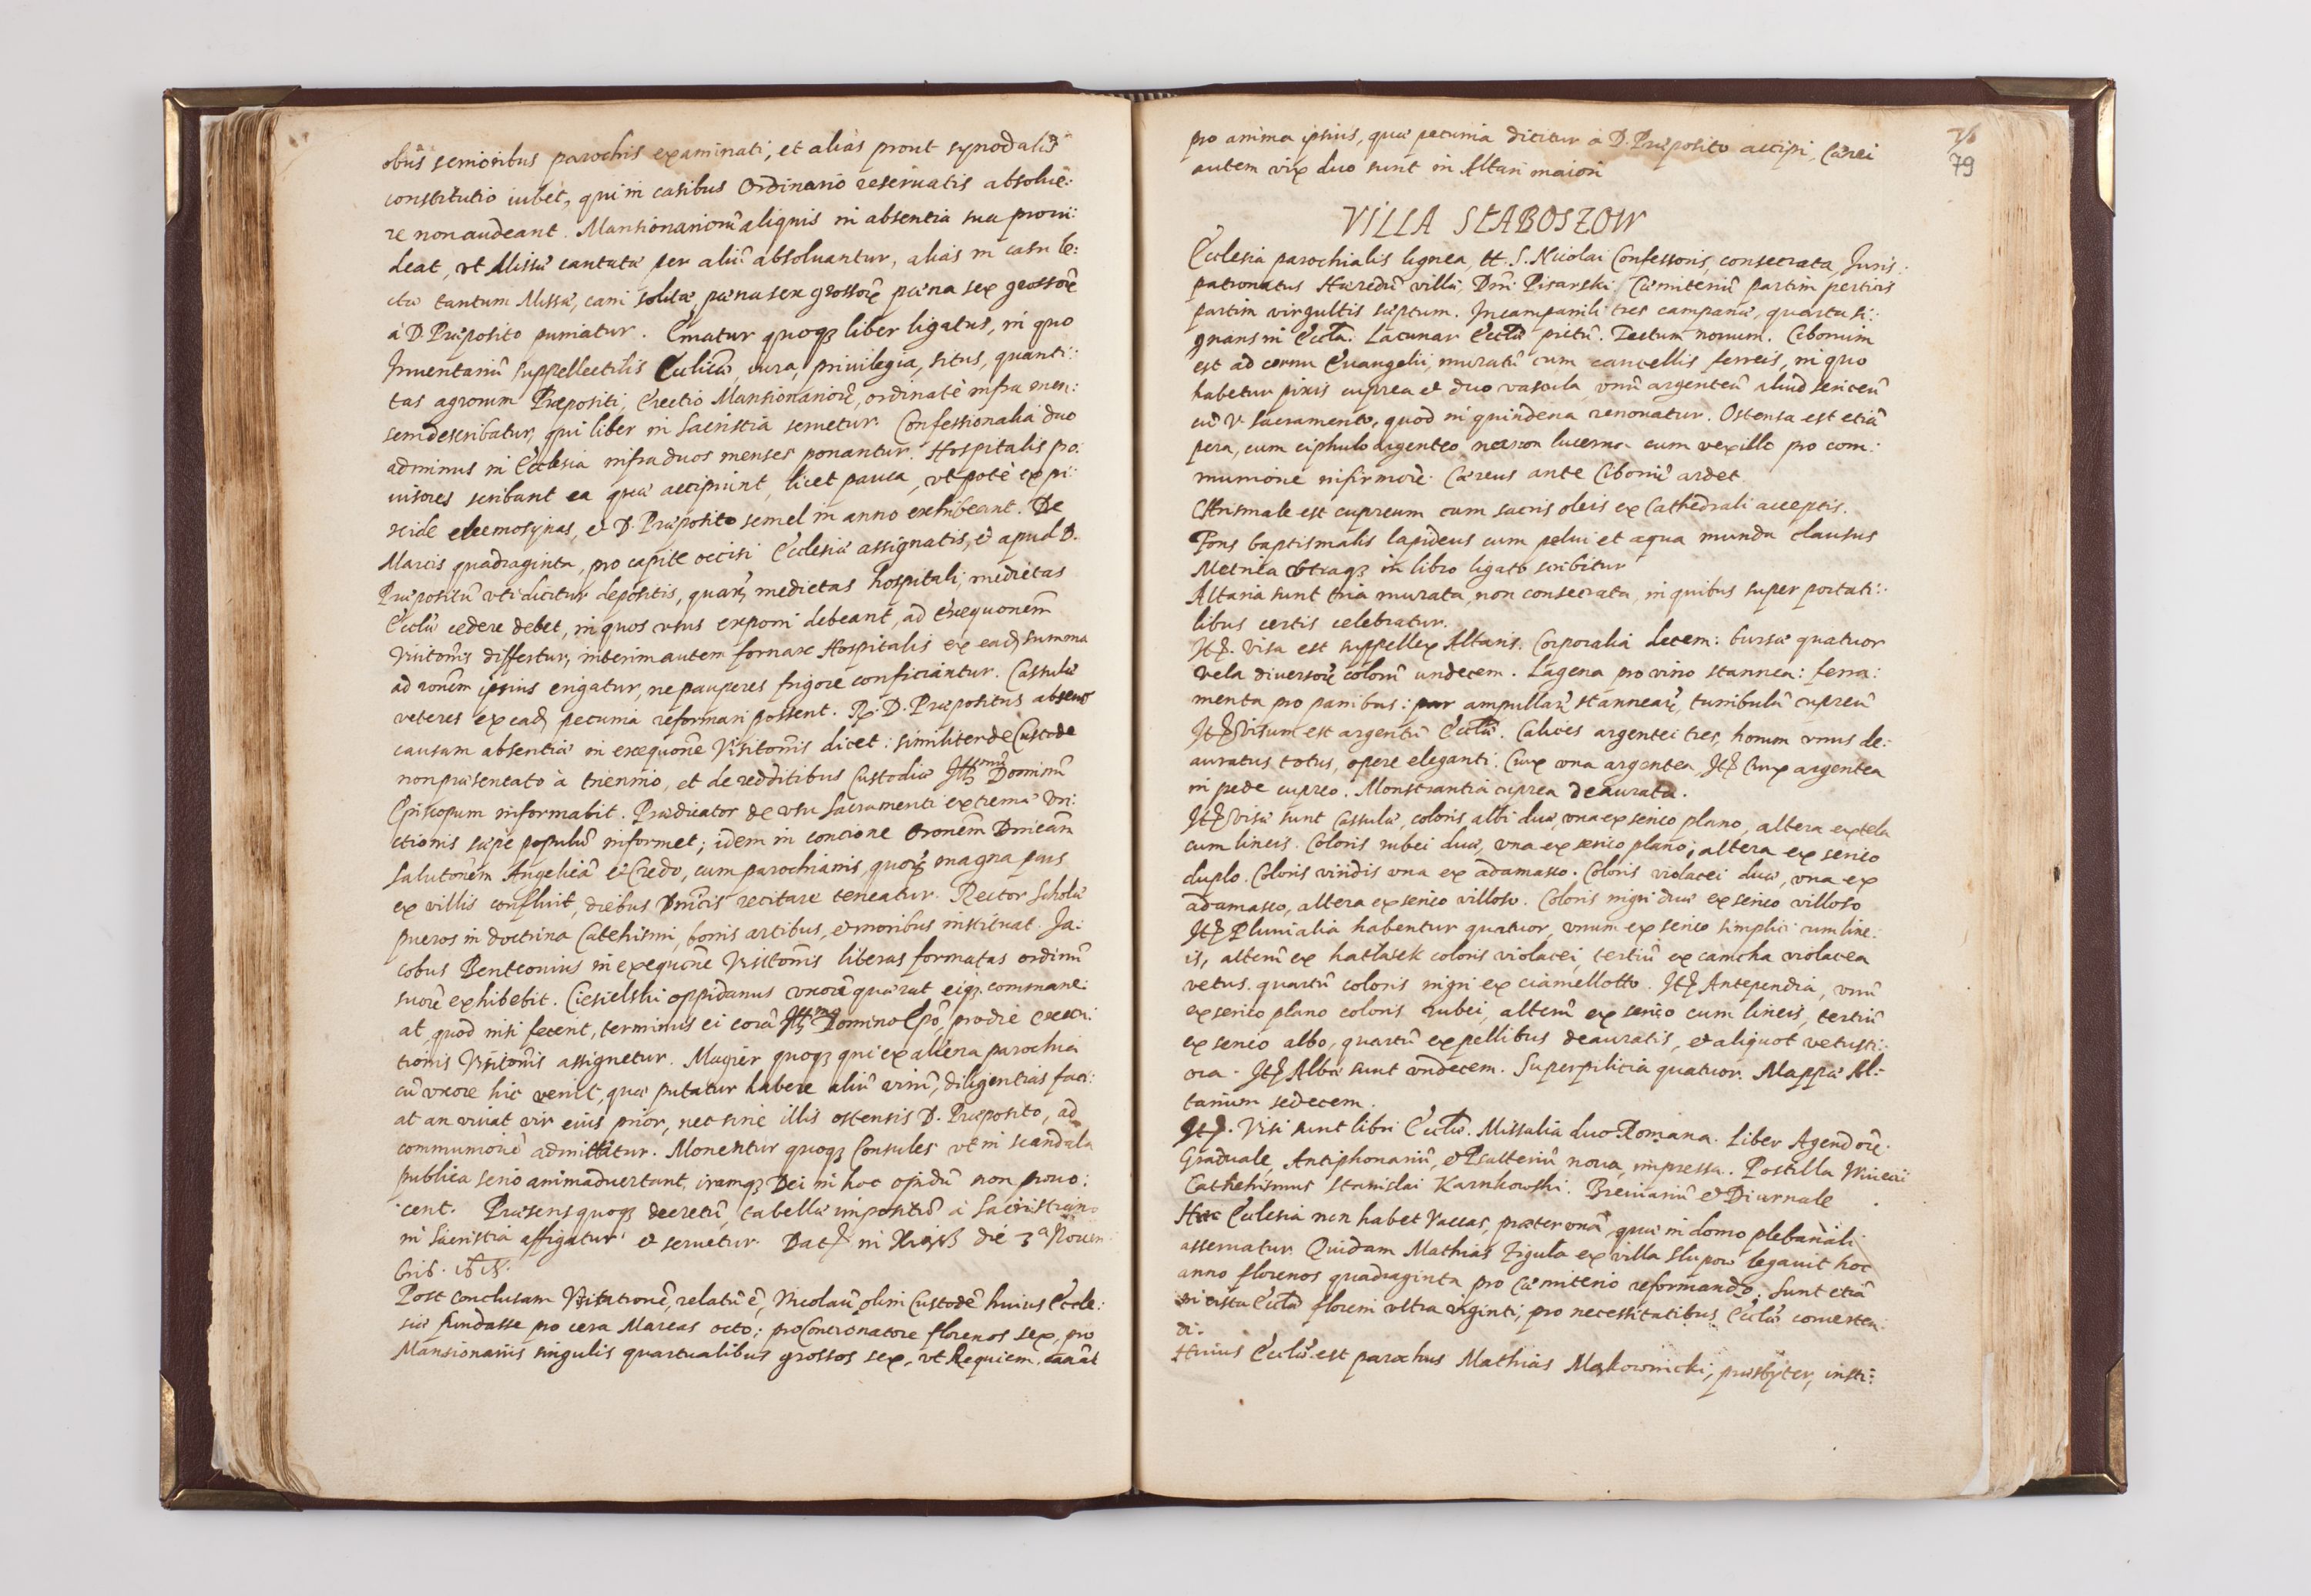 obus senioribus parochis examinati, et alias prout synodalis
constitutio iubet, qui in casibus Ordinario reseruatis absolue:
re non audeant. Mansionarioru aliquis in absentia sua proui:
deat, vt Missæ cantatæ per aliu absoluantur, alias in casu le:
ctæ tantum Missæ, cani solitæ, pæna sex grossorũ pæna sex grossorũ
à D. Præposito puniatur. Ematur quoqз liber ligatus, in quo
Inuentariũ suppellectilis Ecclicæ, iura, priuilegia, situs, quanti:
tas agrorum Præpositi, Erectio Mansionariorũ, ordinatè infra men:
sem describatur, qui liber in Sacristia seruetur. Confessionalia duo
adminus in Ecclesia infra duos menses ponantur. Hospitalis pro:
uisores scribant ea quæ accipiunt, licet pauca, vtpotè ex pi:
xide eleemosynas, et D. Præposito semel in anno exhibeant. De
Marcis quadraginta, pro capite occisi Ecclesiæ assignatis, et apud D.
Præpositũ vti dicitur depositis, quarũ medietas hospitali, medietas
Ecclæ cedere debet, in quos vsus exponi debeant, ad exequonem
Visitonis differtur, interim autem fornax Hospitalis ex ead summa
ad ronem ipsius erigatur, ne pauperes frigore conficiantur. Cassulæ
veteres ex ead pecunia reformari possent. R. D. Præpositus absens
causam absentiæ in exequone Visitonis dicet: similiter de Custode
non præsentato à triennio, et de redditibus Custodiæ Illmũ Dominũ
Episcopum informabit. Prædicator de vsu Sacramenti extremæ Vn:
ctionis sæpe populũ informet; idem in concione Oronem Dnicam
Salutonem Angelicã et Credo, cum parochianis, quorũ magna pars
ex villis confluit, diebus Dnicis recitare teneatur. Rector Scholæ
pueros in doctrina Catehismi, bonis artibus, et moribus instituat. Ja:
cobus Benteonius in exequone Visitonis literas formatas ordinũ
suorũ exhibebit. Ciesielski oppidanus vxorẽ quærat eiqз commane:
at, quod nisi fecerit, terminus ei corã Illmo Domino Epõ, pro die execu:
tionis Visitonis assignetur. Magier quoqз qui ex aliena parochia
cũ vxore hic venit, quæ putatur habere aliũ virũ, diligentias faci:
at an viuat vir eius prior, nec sine illis ostensis D. Præposito, ad
communionẽ admittatur. Monentur quoqз Consules vt in scandala
publica serio animaduertant, iramqз Dei in hoc opidũ non prouo:
cent. Præsens quoqз decretũ, tabellæ impositũ à Sacristiano
in Sacristia affigatur et seruetur. Dat in die 3ª Nouem
bris.
Post conclusam Visitationẽ, relatũ ẽ, Nicolaũ olim Custodẽ huius Eccle:
siæ fundasse pro cera Marcas octo; pro Concionatore florenos sex, pro
Mansionariis singulis quartualibus grossos sex, vt Requiem canãt
pro anima ipsius, quæ pecunia dicitur à D. Præposito accipi, Cærei
autem vix duo sunt in Altari maiori
76
79
VILLA STABOSZOW
Ecclesia parochialis lignea, tt. S. Nicolai Confessoris, consecrata, Juris:
patronatus Hæredũ villæ, Dni Pisarski. Cæmiteriũ partim perticis
partim virgultis sæptum. In campanili tres campanæ, quarta si:
gnans in Eccla. Lacunar Ecclæ pictũ. Tectum nouum. Ciborium
est ad cornu Euangelii, muratũ cum cancellis ferreis, in quo
habetur pixis cuprea et duo vascula, vnũ argenteũ aliud sericeũ
cũ V. Sacramento, quod in quindena renouatur. Ostensa est etiã
pera, cum ciphulo argenteo, necnon lucerna cum vexillo pro com:
munione infirmorũ. Cæreus ante Ciboriũ ardet.
Chrismale est cupreum cum sacris oleis ex Cathedrali acceptis.
Fons baptismalis lapideus cum pelui et aqua munda clausus
Metrica vtraqз in libro ligato scribitur
Altaria sunt tria murata, non consecrata, in quibus super portati:
libus certis celebratur.
It. Visa est suppellex Altaris. Corporalia decem: bursæ quatuor
vela diuersorũ colorũ undecem. Lagena pro vino stannea: ferra:
menta pro panibus: par ampullarũ stannearũ, turribulũ cupreũ
It Visum est argentũ Ecclæ. Calices argentei tres, horum vnus de:
auratus totus, opere eleganti. Crux vna argentea, It Crux argentea
in pede cupreo. Monstrantia cuprea deaurata.
It Visæ sunt Cassulæ, coloris albi duæ, vna ex serico plano, altera ex tela
cum lineis. Coloris rubei duæ, vna ex serico plano, altera ex serico
duplo. Coloris viridis vna ex adamasco. Coloris violacei duæ, vna ex
adamasco, altera ex serico villoso. Coloris nigri duæ ex serico villoso
It Pluuialia habentur quatuor, vnum ex serico simplici cum line:
is, alterũ ex hatłasek coloris violacei, tertiũ ex camcha violacea
vetus. quartũ coloris nigri ex ciamellotto. It Antependia, vnũ
ex serico plano coloris rubei, alterũ ex serico cum lineis, tertiũ
ex serico albo, quartũ ex pellibus deauratis, et aliquot vetusti:
ora. It Albæ sunt vndecem. Superpilicia quatuor. Mappæ Al:
tarium sedecem.
It. Visi sunt libri Ecclæ. Missalia duo Romana. Liber Agendorũ.
Graduale, Antiphonariũ, et Psalteriũ noua, impressa. Postilla Wuieci
Cathehismus Stanislai Karnkowski. Breuiariũ et Diurnale
Hæc Ecclesia non habet Vaccas, præter vnã, quæ in domo plebanali
asseruatur. Quidam Mathias Zigula ex villa Slupow legauit hoc
anno florenos quadraginta pro Cæmiterio reformando. Sunt etiã
in cista Ecclæ floreni vltra viginti, pro necessitatibus Ecclæ conuerten:
di.
Huius Ecclæ est parochus Mathias Makownicki, præsbyter, insti: